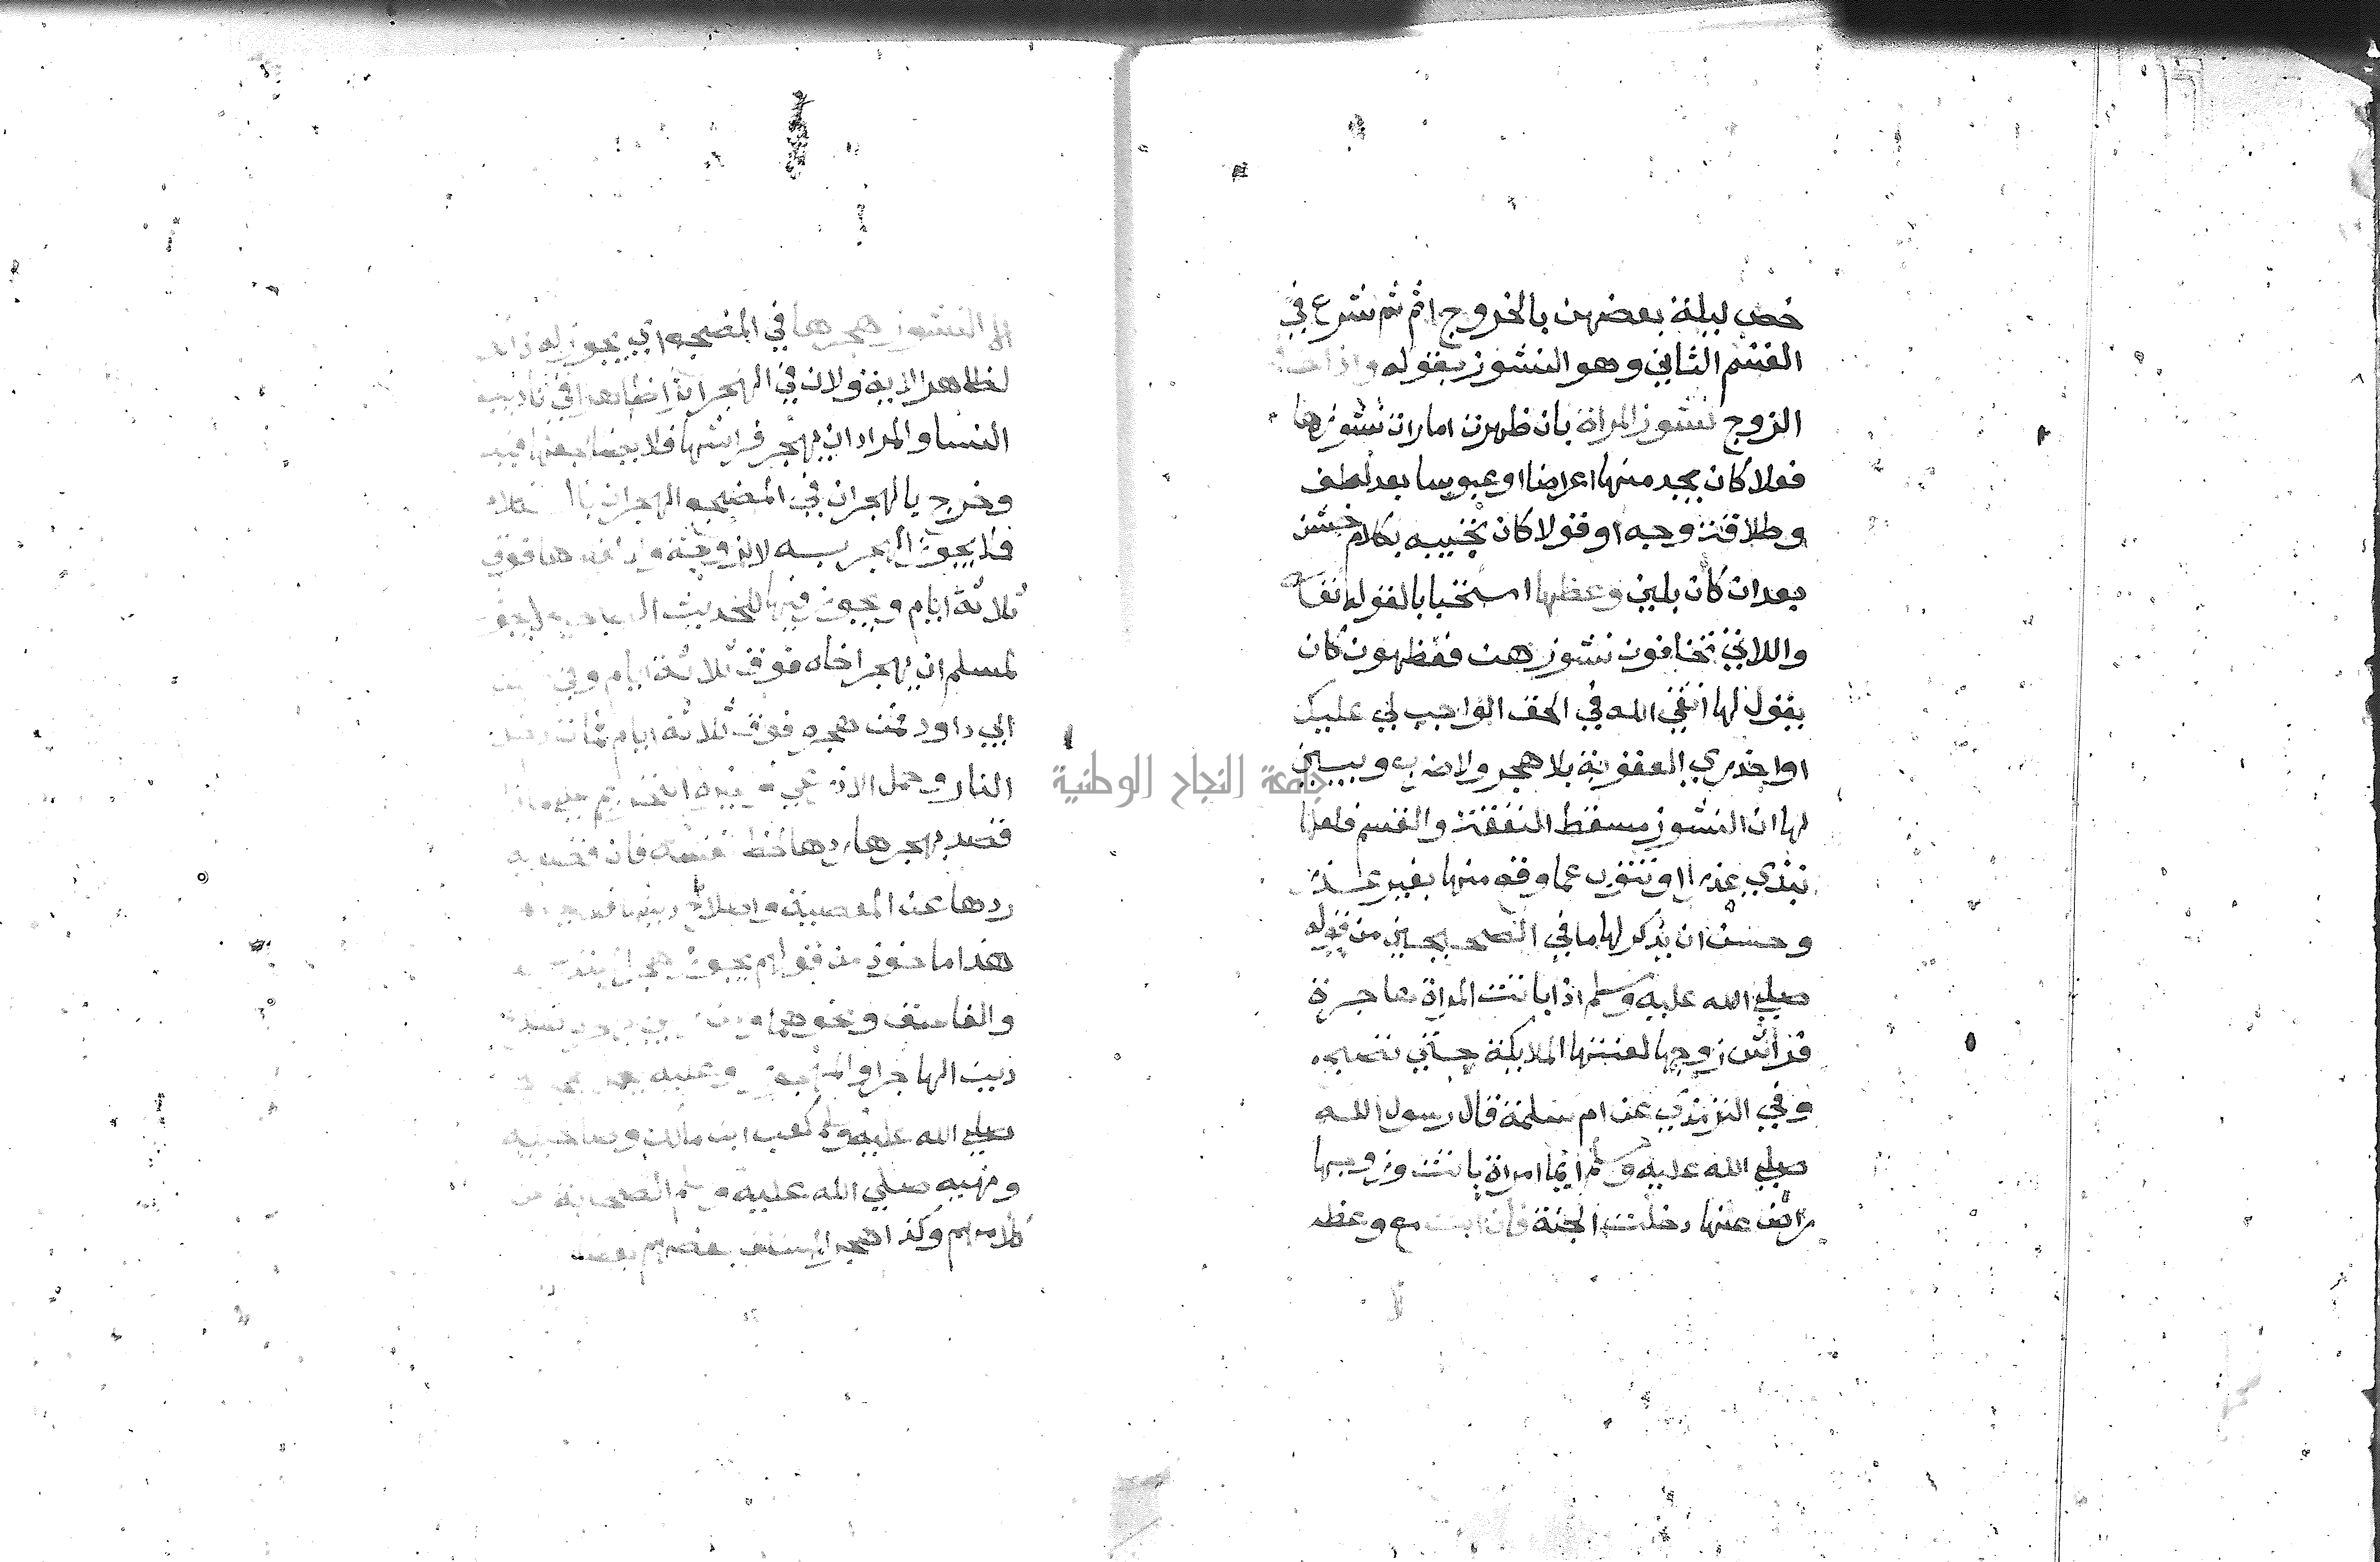 خص ليلة بعضهن بالخروج اثم ثم شرع في
القسم الثاني وهو النشوز بقوله واذا
الزوج نشوز المراة بان ظهرت امارات نشوزها
فعلا كان يجد منها اعراضا او عبوسا بعد لطف
وطلاقة وجه او قولا كان تجيبه بكلام خشن
بعد ان كان بلين وعظها استحبابا لقوله تعالى
واللاتي تخافون نشوزهن فعظوهن كان
يقول لها اتقي الله في الحق الواجب لي عليك
واحذري العقوبة بلا هجر ولا ضرب ويبين
لها ان النشوز مسقط النفقة والقسم فلعلها
تبدي عذرا او تتوب عما وقع منها بغير عذر
وحسن ان يذكر لها ما في الصحيحين من قوله
صلى الله عليه وسلم اذا باتت المراة هاجرة
فراش زوجها لعنتها الملايكة حتي تصبح
وفي الترمذي عن ام سلمة قال رسول الله
صلى الله عليه وسلم ايما امراة باتت وزوجها
راض عنها دخلت الجنة فان ابت مع وعظه
الا النشوز هجرها في المضجع اي يجوز له ذلك
لظاهر الاية ولان في الهجران اثرا ظاهرا في تاديب
النسا والمراد ان يهجر فراشها فلا يضاجعها فيه
وخرج بالهجران في المضجع الهجران بالكلام
فلا يجوز الهجر به لا لزوجة ولا لغيرها فوق
ثلاثة ايام ويجوز فيها للحديث الصحيح لا يحل
لمسلم ان يهجر اخاه فوق ثلاثة ايام وفي
ابي داود فمن هجره فوق ثلاثة ايام فمات دخل
النار وحمل
قصد بهجرها ردها لحظ نفسه فان قصد به
ردها عن المعصية واصلاح دينها فلا
هذا ماخوذ من قولهم يجوز هجر المبتدع
والفاسق ونحوهما
دين الهاجر او المهجور وعليه يحمل هجره
صلى الله عليه وسلم كعب ابن مالك وصاحبيه
ونهيه صلي الله عليه وسلم الصحابة عن
كلامهم وكذا هجر السلف بعضهم بعضا
جامعة النجاح الوطنية